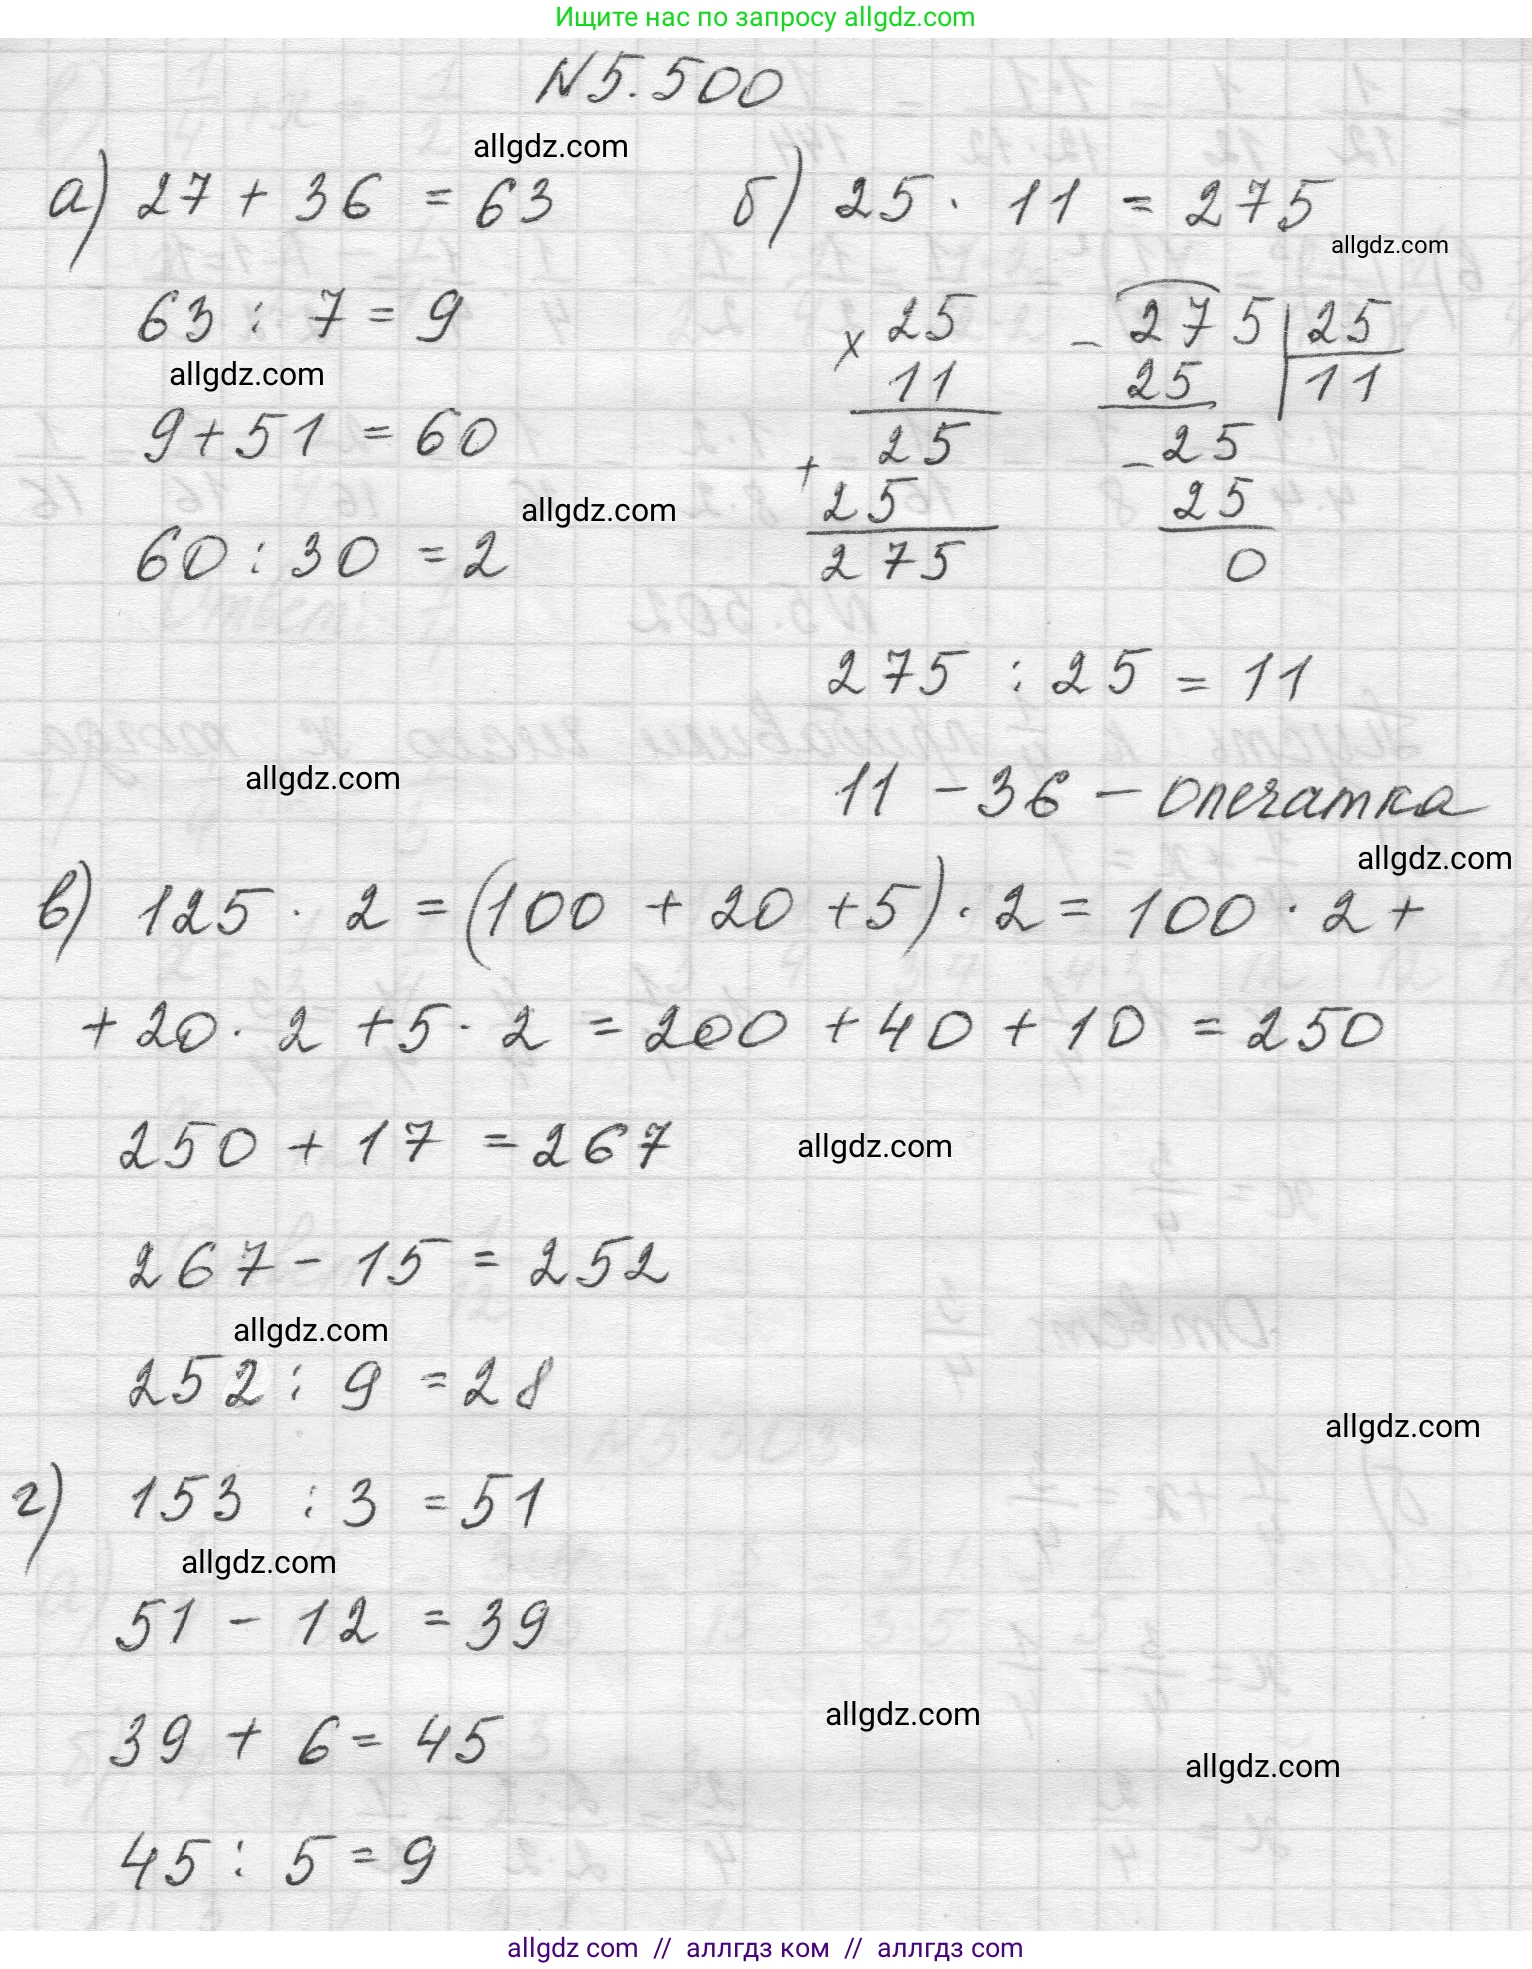 Ищите нас по запросу allgdz.com
N5.500
allgdz.com
а) 27 + 36 = 63
63 : 7 = 9
allgdz.com
9 + 51 = 60
allgdz.com
60 : 30 = 2
б) 25 · 11 = 275
allgdz.com
× 25
11
+ 25
25
275
- 275 | 25
25 | 11
- 25
25
0
275 : 25 = 11
allgdz.com
11 - 36 - опечатка
allgdz.com
в) 125 · 2 = (100 + 20 + 5) · 2 = 100 · 2 +
+ 20 · 2 + 5 · 2 = 200 + 40 + 10 = 250
250 + 17 = 267
allgdz.com
267 - 15 = 252
allgdz.com
252 : 9 = 28
allgdz.com
г) 153 : 3 = 51
allgdz.com
51 - 12 = 39
39 + 6 = 45
allgdz.com
allgdz.com
45 : 5 = 9
allgdz com // аллгдз ком // аллгдз com